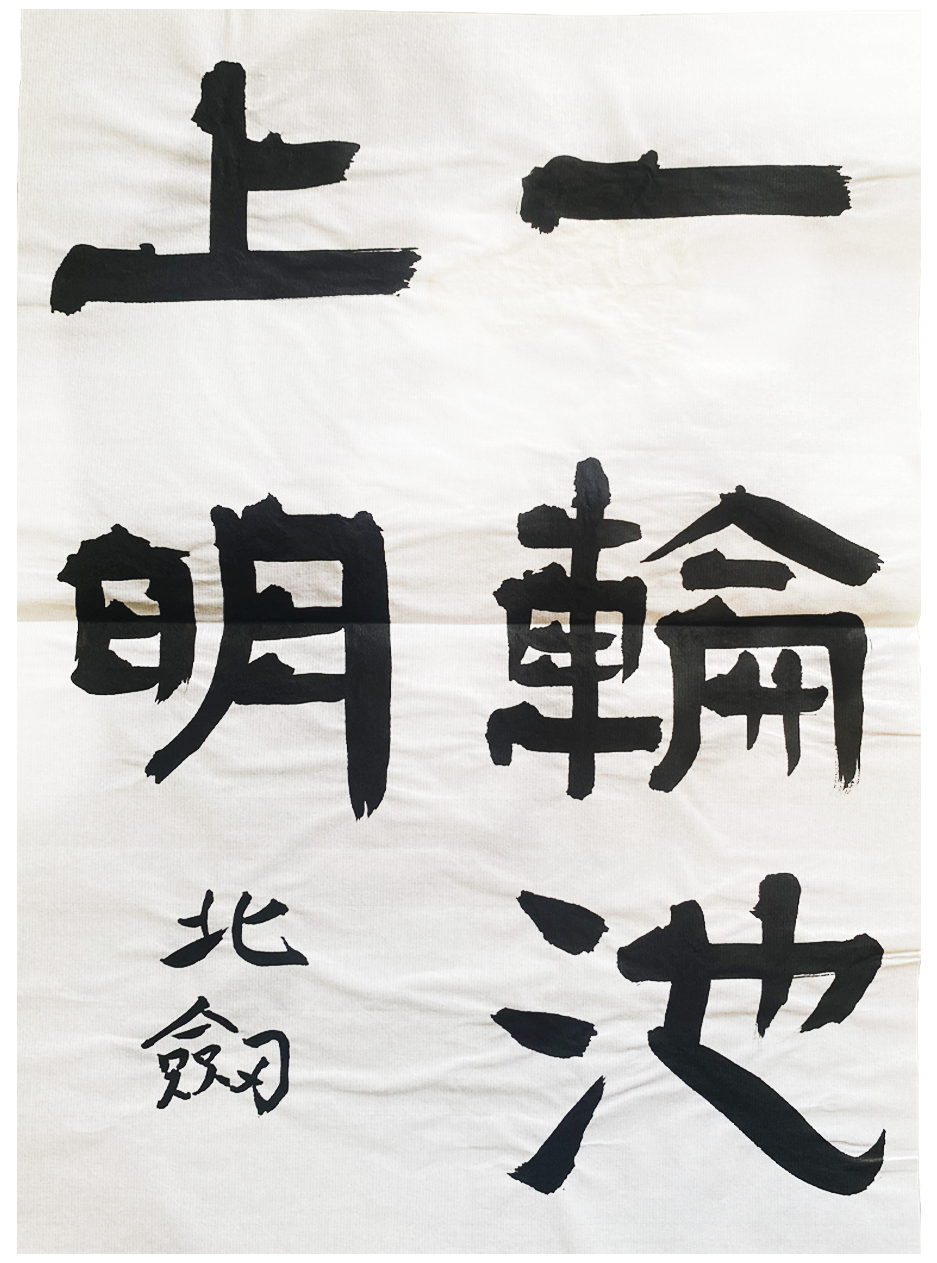 一輪池
上明
北劔